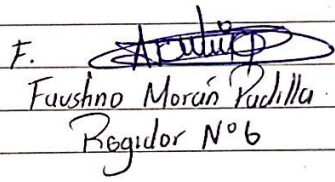 F.
Faustino Morán Padilla.
Regidor Nº 6